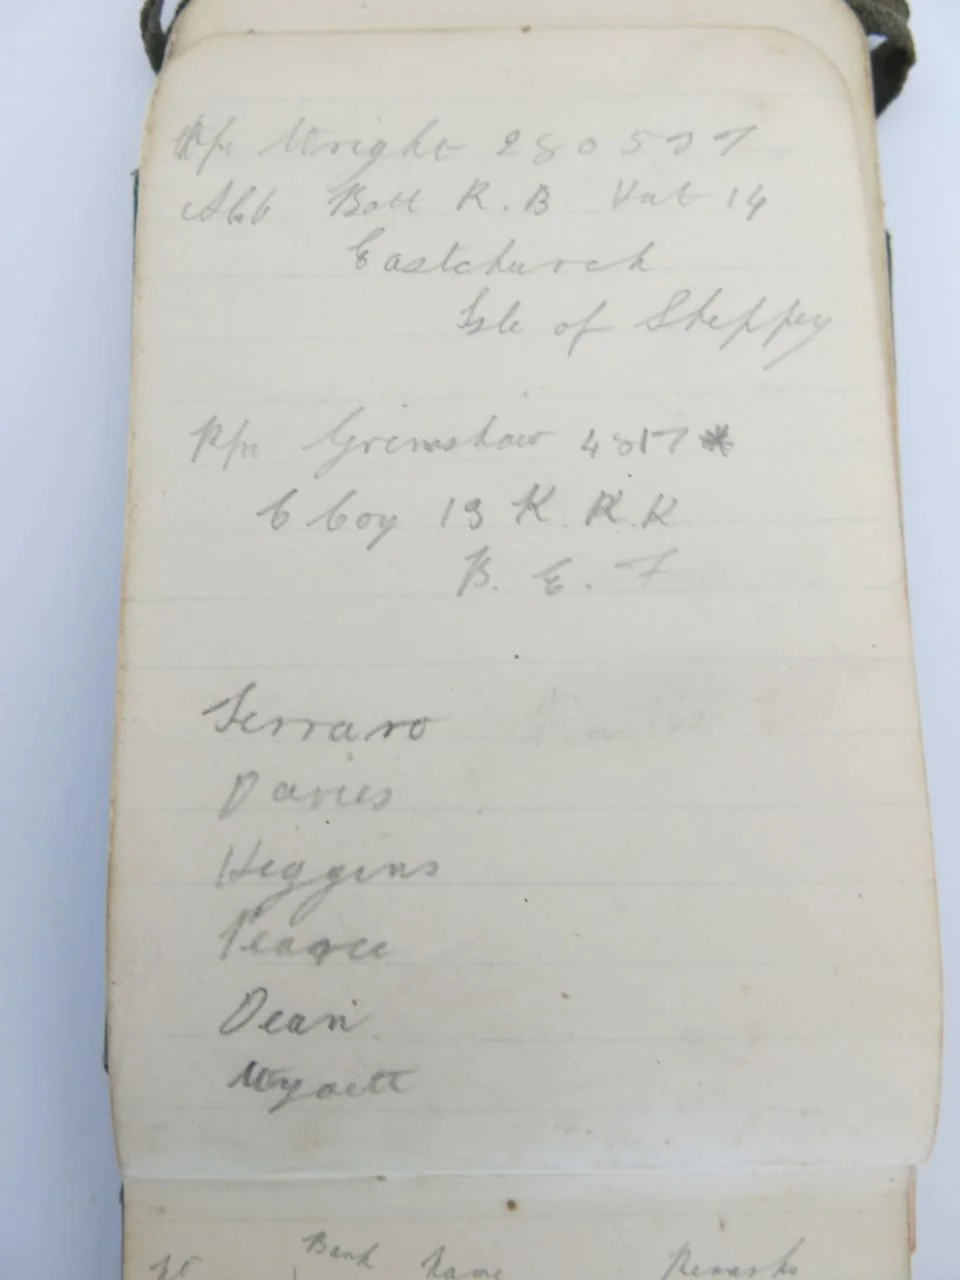 Wright 280577
Batt R.B Hut 14
Eastchurch
Isle of Sheppey
Rfn Grimshaw 4317
C Coy 13 K.R.R
B.E.F
Ferraro
Davies
Higgins
Pearce
Dean
Wyatt
Name Remarks